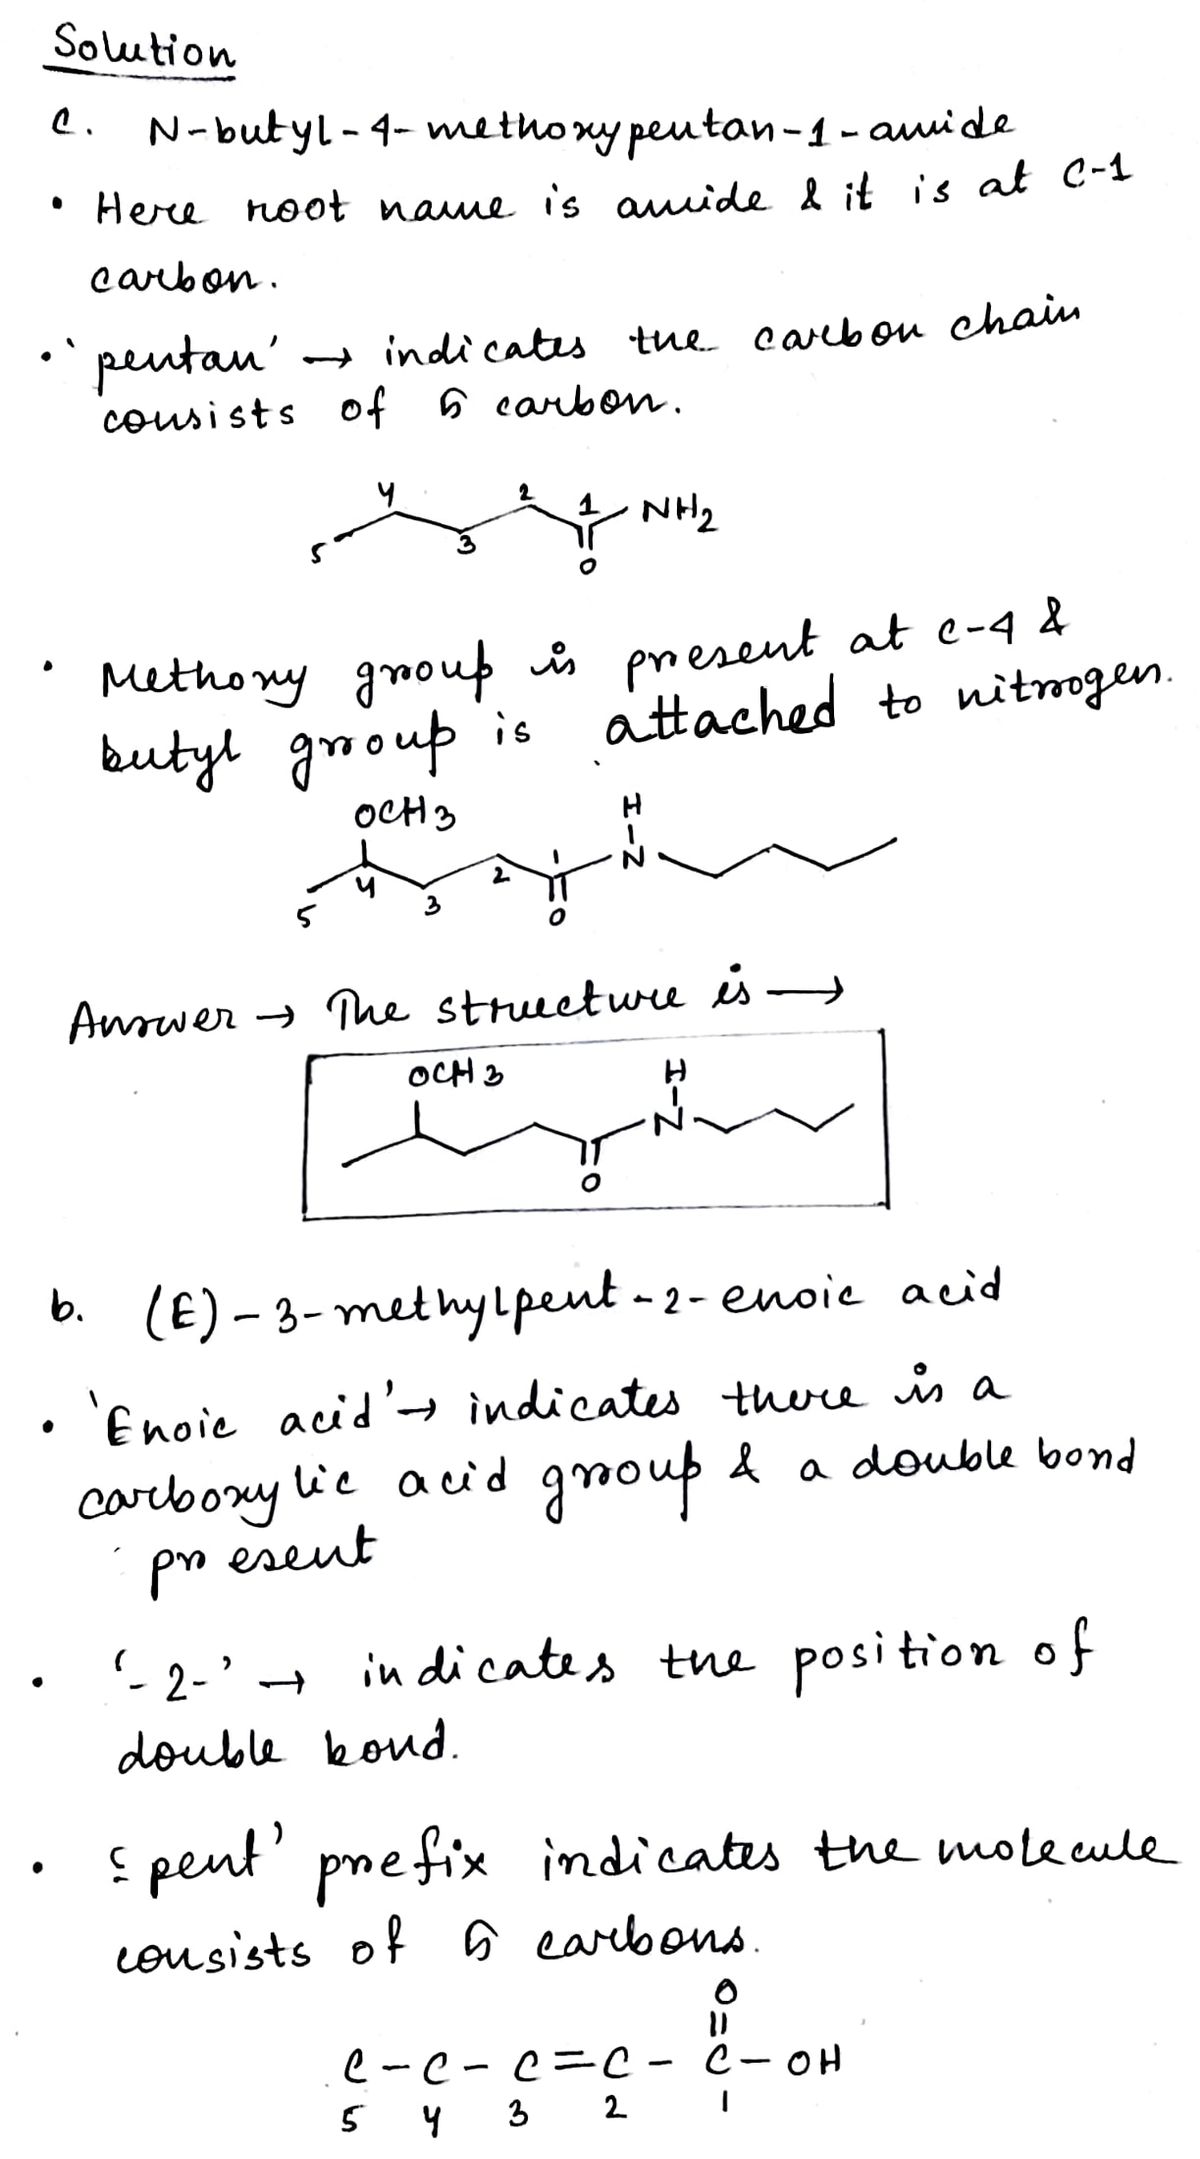 Solution
c. N-butyl-4-methoxypentan-1-amide
• Here root name is amide & it is at C-1
carbon.
• 'pentan' → indicates the carbon chain
consists of 5 carbon.
5 4 3 2 1 NH2
O
• Methoxy group is present at C-4 &
butyl group is attached to nitrogen.
OCH3 H
5 4 3 2 1 N
O
Answer → The structure is →
OCH3 H
N
O
b. (E)-3-methylpent-2-enoic acid
• 'Enoic acid' → indicates there is a
carboxylic acid group & a double bond
present
• '-2-' → indicates the position of
double bond.
• 'pent' prefix indicates the molecule
consists of 5 carbons.
O
||
C-C-C=C-C-OH
5 4 3 2 1